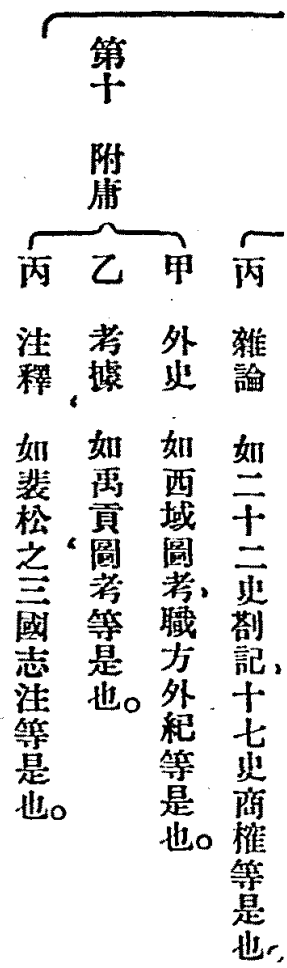 丙　雜論　如二十二史劄記、十七史商榷等是也。
第十　附庸
甲　外史　如西域圖考、職方外紀等是也。
乙　考據　如禹貢圖考等是也。
丙　注釋　如裴松之三國志注等是也。